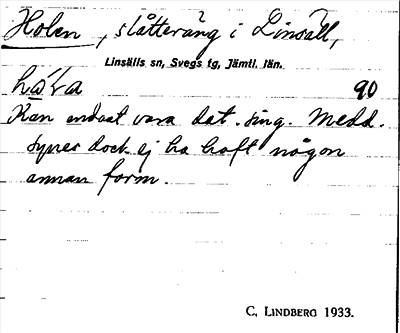 Holen, slåtteräng i Linsäll,
Linsälls sn, Svegs tg, Jämtl. län.
90
Kan endast vara dat. sing. Medd.
synes dock ej ha haft någon
annan form.
C. LINDBERG 1933.